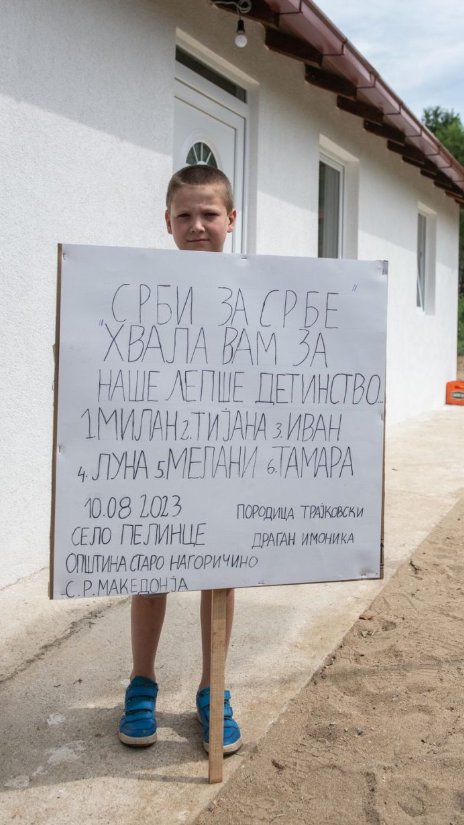 СРБИ ЗА СРБЕ"
"ХВАЛА ВАМ ЗА
НАШЕ ЛЕПШЕ ДЕТИНСТВО
1.МИЛАН 2.ТИЈАНА 3.ИВАН
4.ЛУНА 5.МЕЛАНИ 6.ТАМАРА
10.08 2023
СЕЛО ПЕЛИНЦЕ
ОПШТИНА СТАРО НАГОРИЧИНО
С.Р. МАКЕДОНЈА
ПОРОДИЦА ТРАЈКОВСКИ
ДРАГАН ИМОНИКА